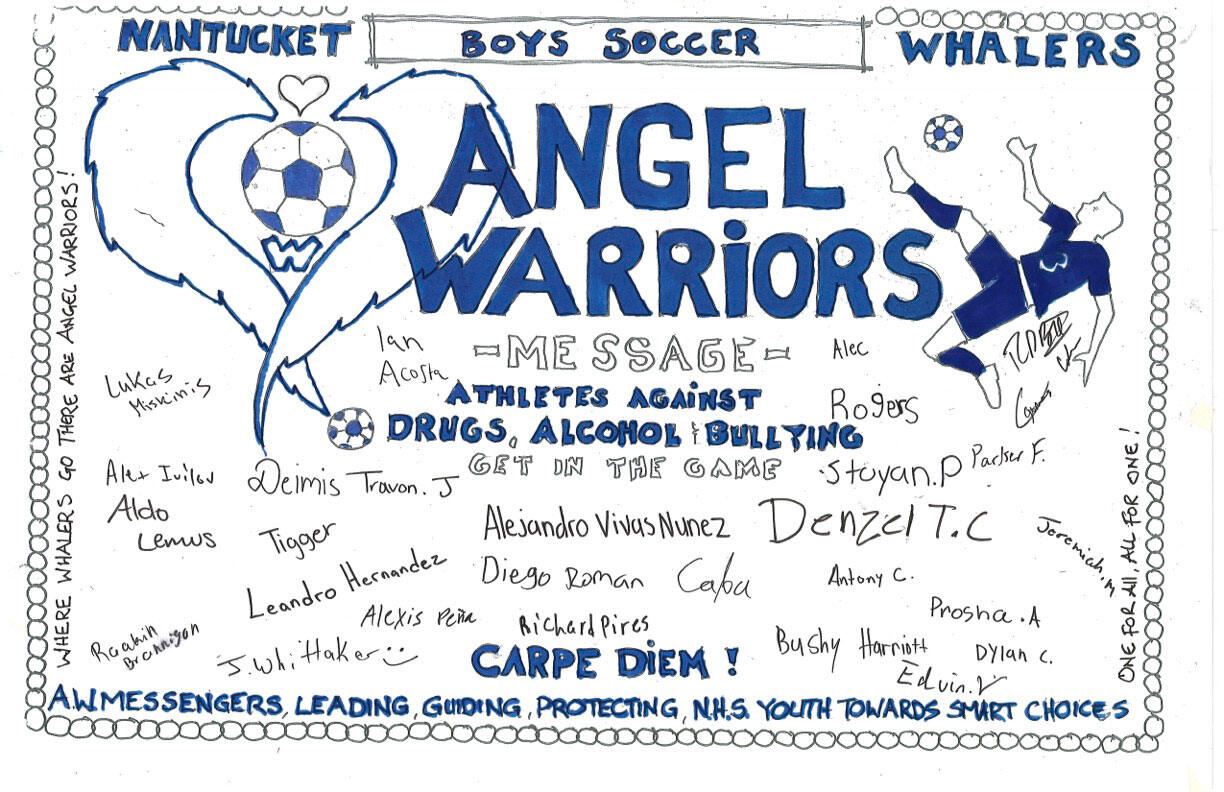 NANTUCKET BOYS SOCCER WHALERS
W
ANGEL
WARRIORS
-MESSAGE-
ATHLETES AGAINST
DRUGS, ALCOHOL & BULLYING
GET IN THE GAME
WHERE WHALERS GO THERE ARE ANGEL WARRIORS!
ONE FOR ALL, ALL FOR ONE!
Ian
Acosta
Alec
Rogers
Lukas
Miskinis
Stoyan.P
Parker F.
Alex Iuilov
Deimis
Travon. J
Aldo
Lemus
Tigger
Alejandro Vivas Nunez
Denzel T.C
Jeremiah.M
Leandro Hernandez
Diego Roman
Antony C.
Alexis Peña
Richard Pires
Prosha.A
Brannigan
J.Whittaker
Bushy Harriott
Dylan C.
Edvin.V
CARPE DIEM!
A.W.MESSENGERS, LEADING, GUIDING, PROTECTING, N.H.S. YOUTH TOWARDS SMART CHOICES